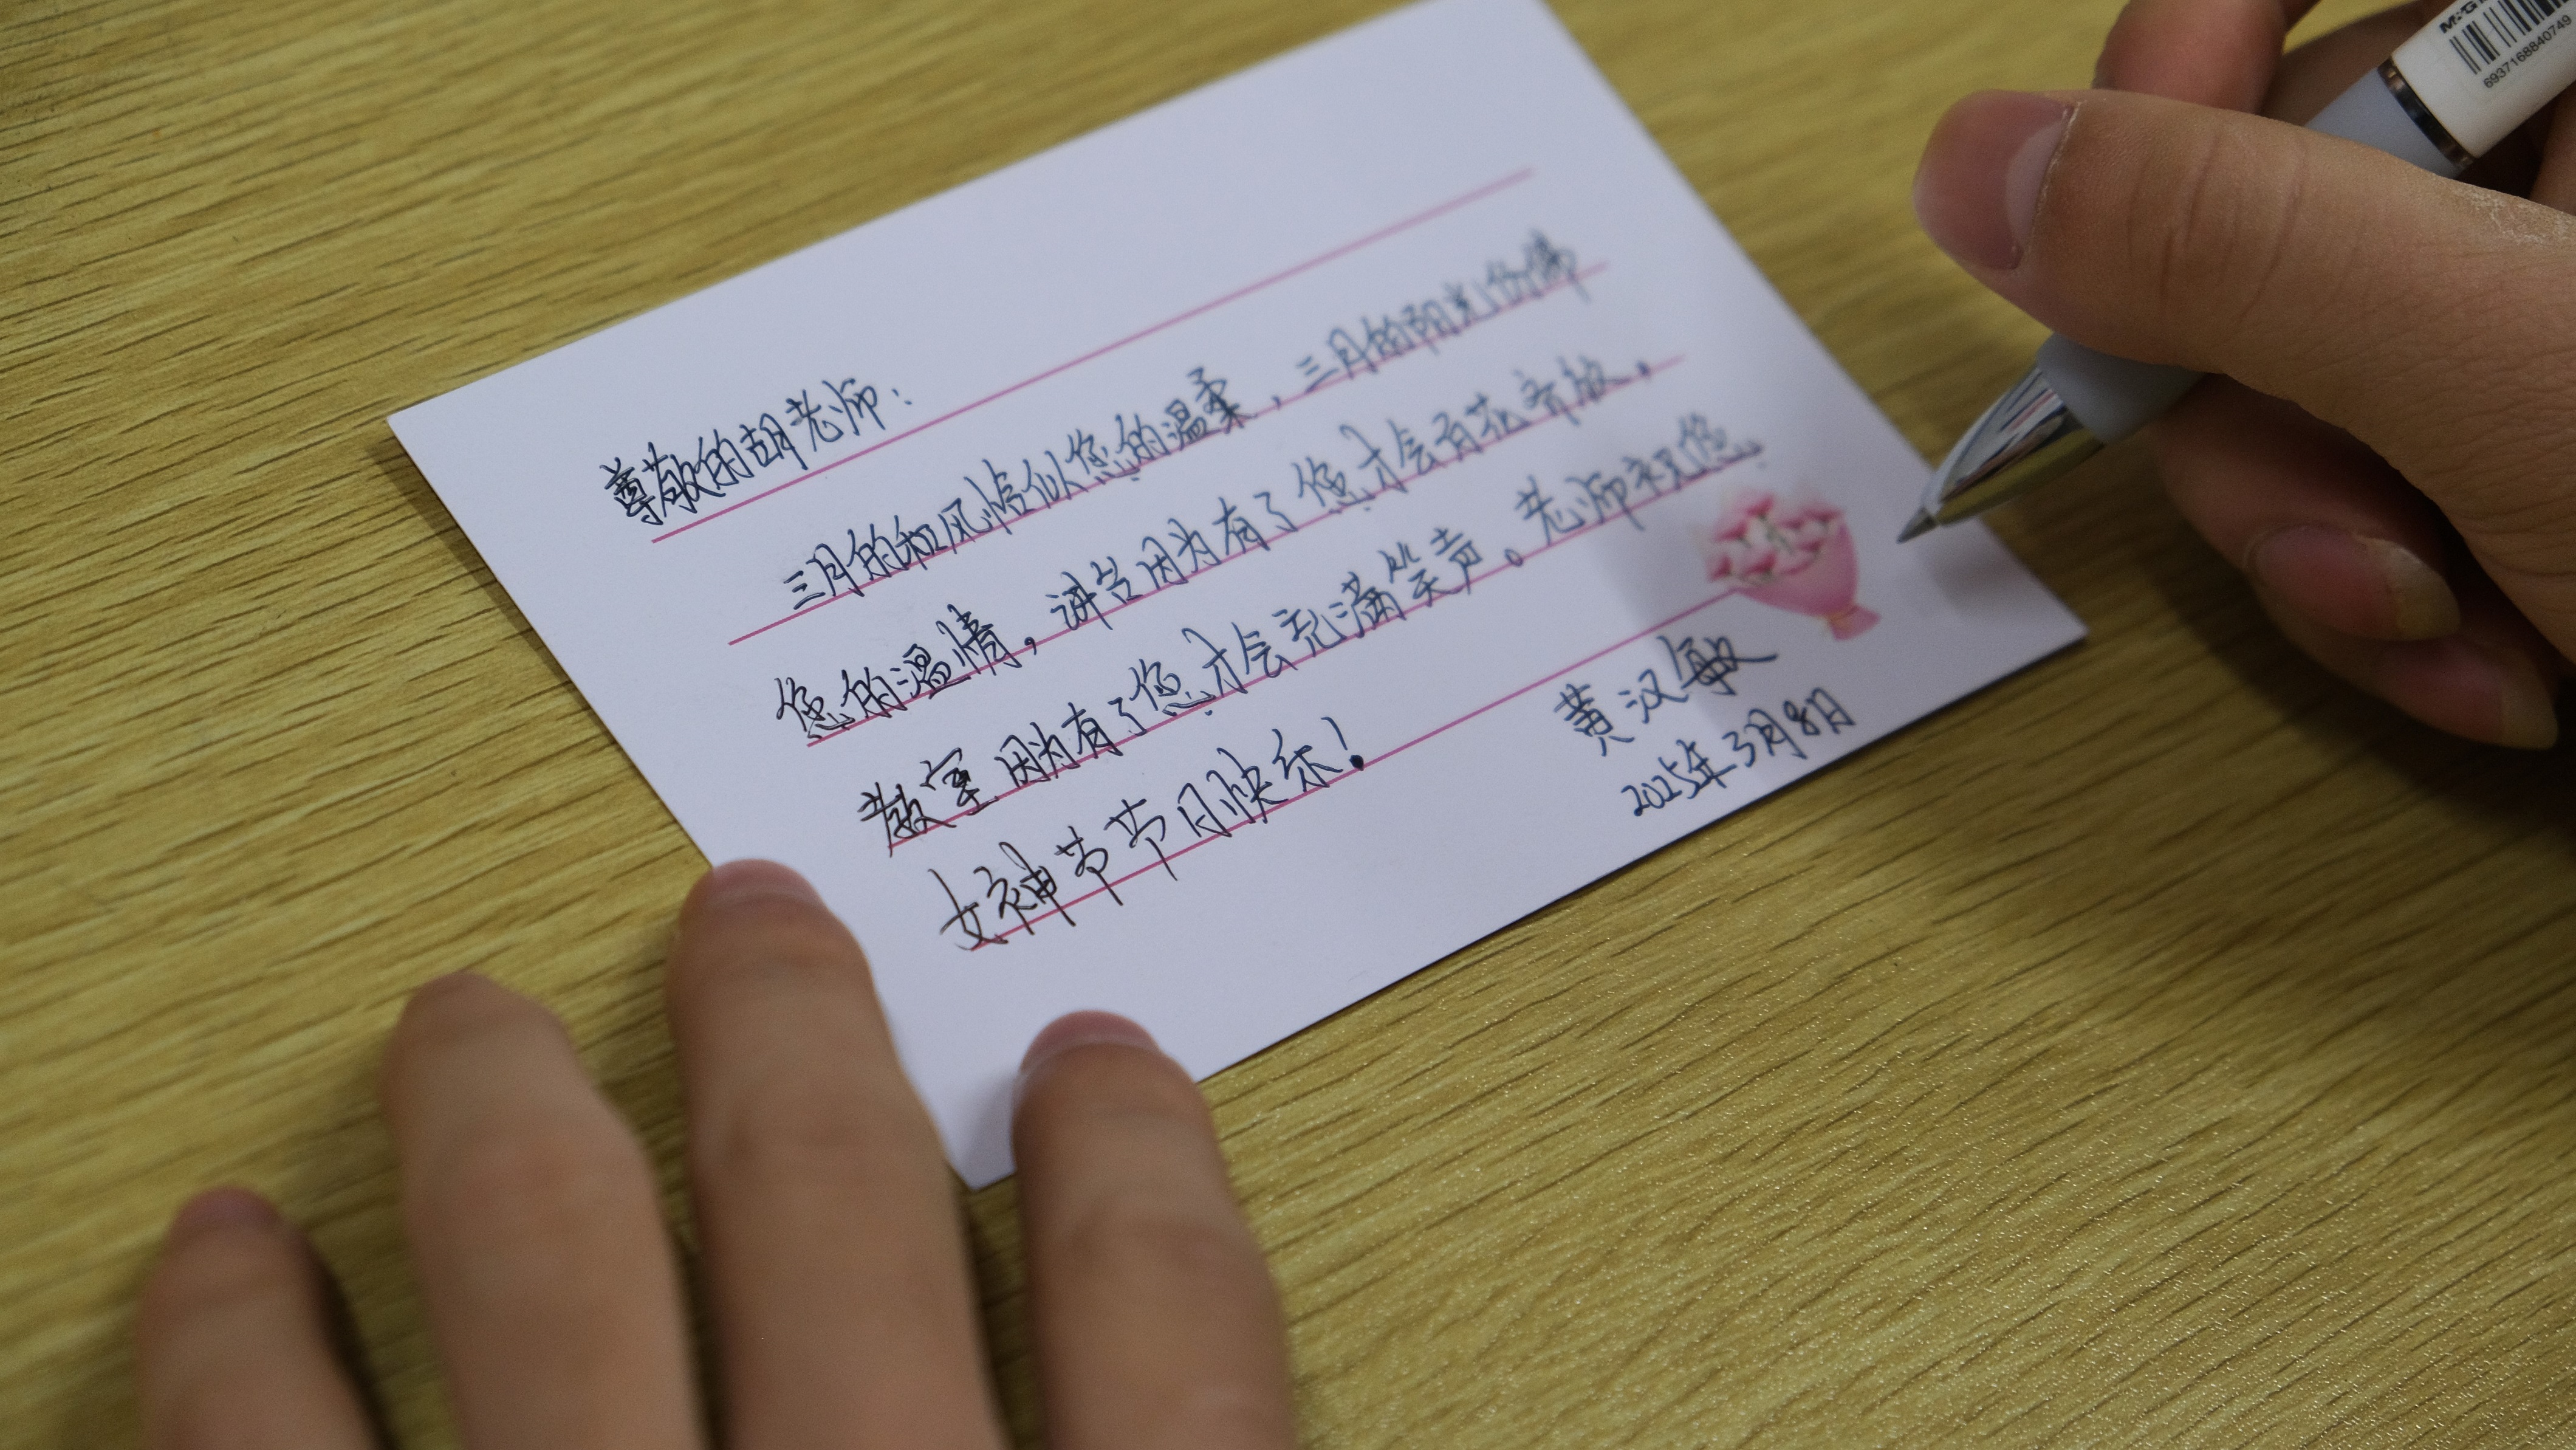 尊敬的胡老师：
三月的和风恰似您的温柔，三月的阳光仿佛
您的温情，讲台因为有了您才会百花齐放，
教室因为有了您才会充满笑声。老师祝您
女神节节日快乐！
黄汉敏
2025年3月8日
M&G
6937168840749